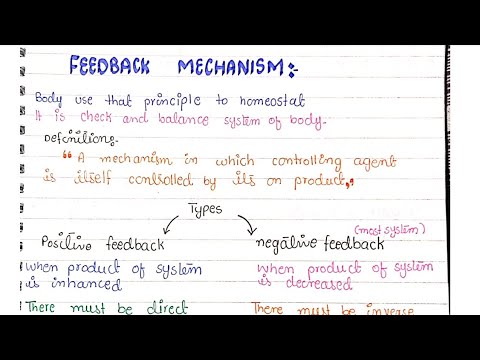 FEEDBACK MECHANISM:-
Body use that principle to homeostat
It is check and balance system of body.
Definition:-
"A mechanism in which controlling agent
is itself controlled by its on product,"
Types
(most system)
Positive feedback negative feedback
when product of system when product of system
is inhanced is decreased
There must be direct There must be inverse